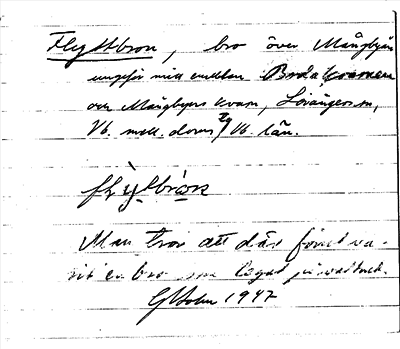 Flyttbron, bro över Mångbyån
ungefär mitt emellan Broda kvarnen
och Mångbyns kvarn, Lövångers sn,
Vb. mell. doms Vb. län.
flyttbròn
Man tror att där förut va-
rit en bro som legat på
GHolm 1947